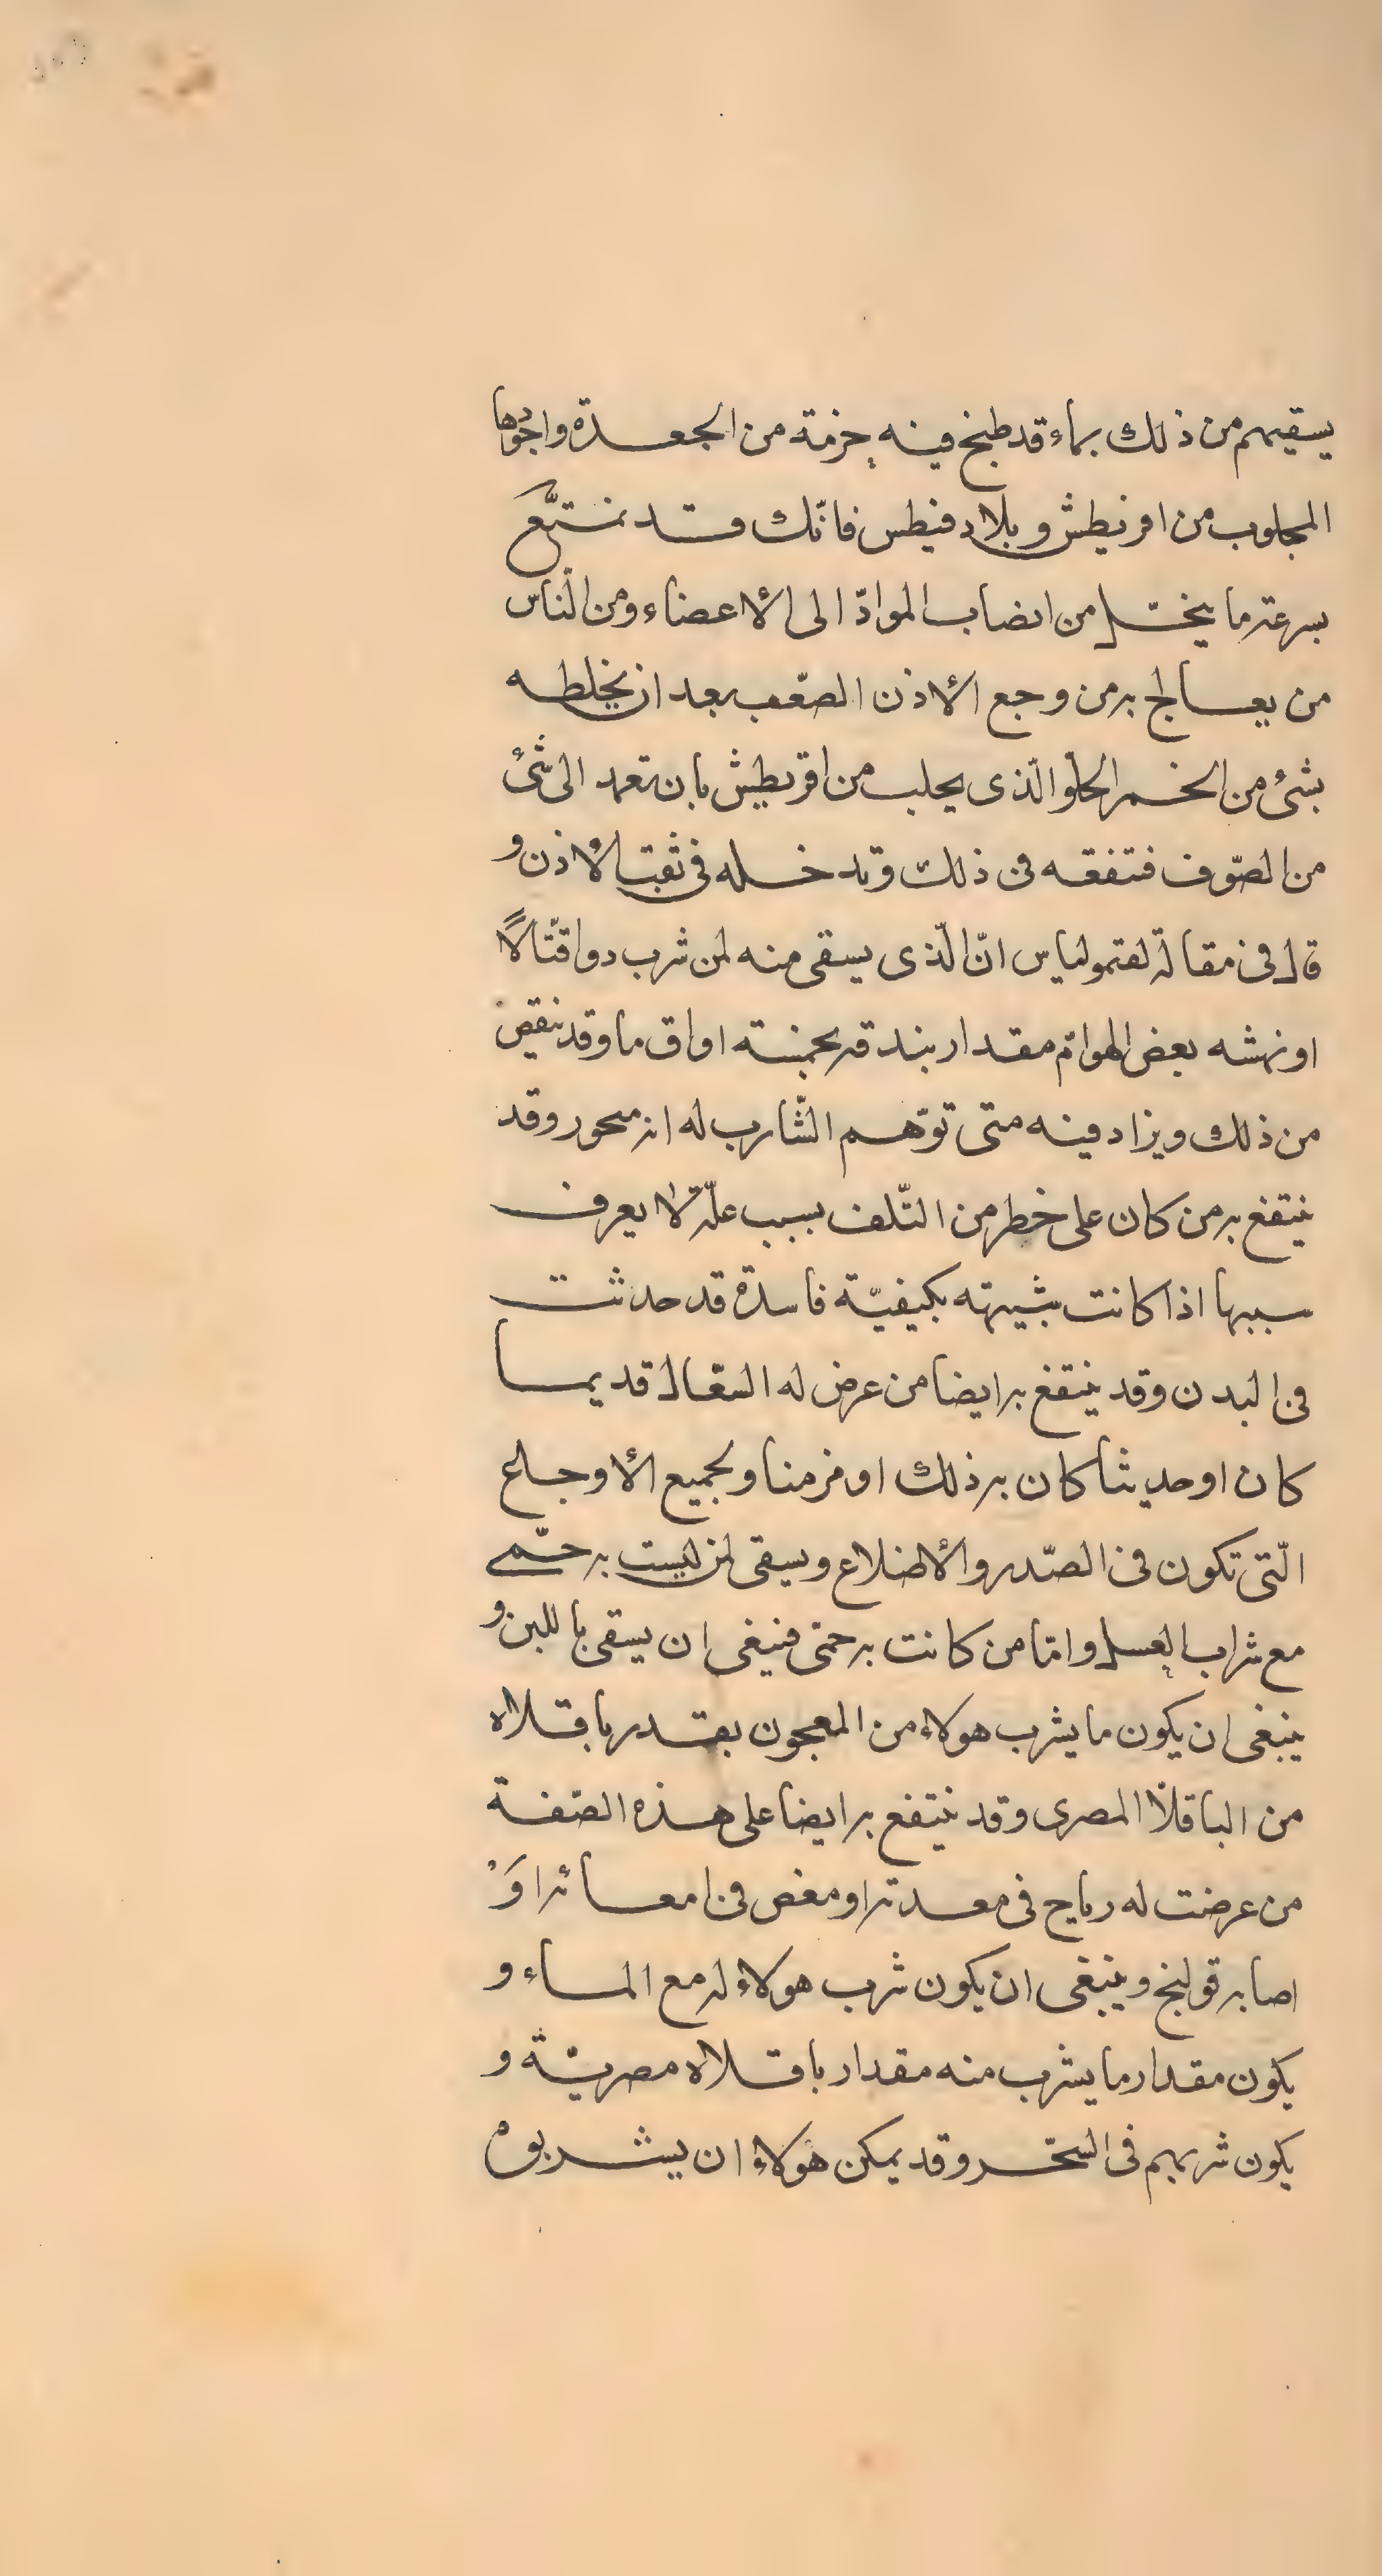 يسقيهم من ذلك بماء قد طبخ فيه حزمة من الجعدة واجودها
المجلوب من اقريطش وبلاد فنيطس فانّك قد تمنع
بسرعة ما يتحلل من انصاب الموادّ الى الأعضاء ومن النّاس
من يعالج به من وجع الأذن الصّعب بعد ان يخلطه
بشئ من الخمر الحلو الّذى يجلب من اقريطش بان تعمد الى شئ
من الصّوف فتنقعه فى ذلك وتدخله فى ثقب الأذن و
قال فى مقالة لفتمولياس انّ الّذى يسقى منه لمن شرب دوا قتّالاً
او نهشه بعض الهوامّ مقدار بندقة بخمسة اواق ما وقد ينقص
من ذلك ويزاد فيه متى توهم الشّارب له انه مسحور وقد
ينتفع به من كان على خطر من التّلف بسبب علّة لا يعرف
سببها اذا كانت شبيهه بكيفيّة فاسدة قد حدثت
فى البدن وقد ينتفع به ايضا من عرض له السّعال قديما
كان او حديثا كان به ذلك او مزمنا ولجميع الأوجاع
الّتى تكون فى الصّدر والأضلاع ويسقى لمن ليست به حمّى
مع شراب العسل وامّا من كانت به حمّى فينبغى ان يسقى باللبن و
ينبغى ان يكون ما يشرب هولاء من المعجون بقدر باقلاه
من الباقلّا المصرى وقد ينتفع به ايضا على هذه الصّفة
من عرضت له رياح فى معدته او مغص فى امعائه اوَ
اصابه قولنج وينبغى ان يكون شرب هولاء له مع الماء و
يكون مقدار ما يشرب منه مقدار باقلاه مصريّة و
يكون شربهم فى السّحر وقد يمكن هولاء ان يشربوه